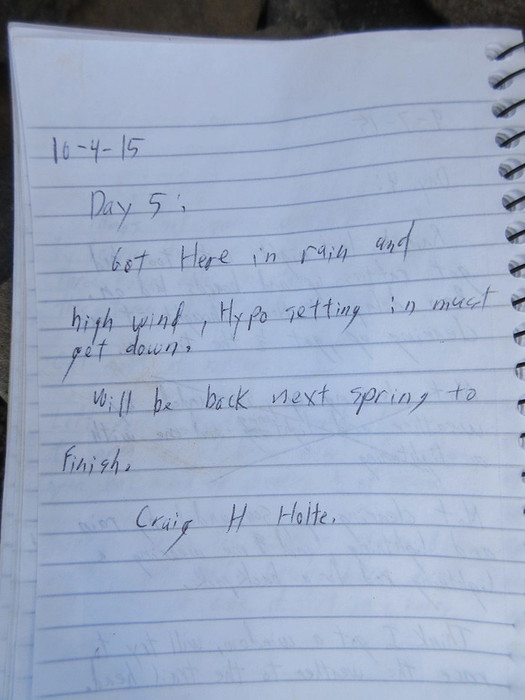 10-4-15
Day 5:
Got Here in rain and
high wind, Hypo setting in must
get down.
Will be back next spring to
Finish.
Craig H Holte.